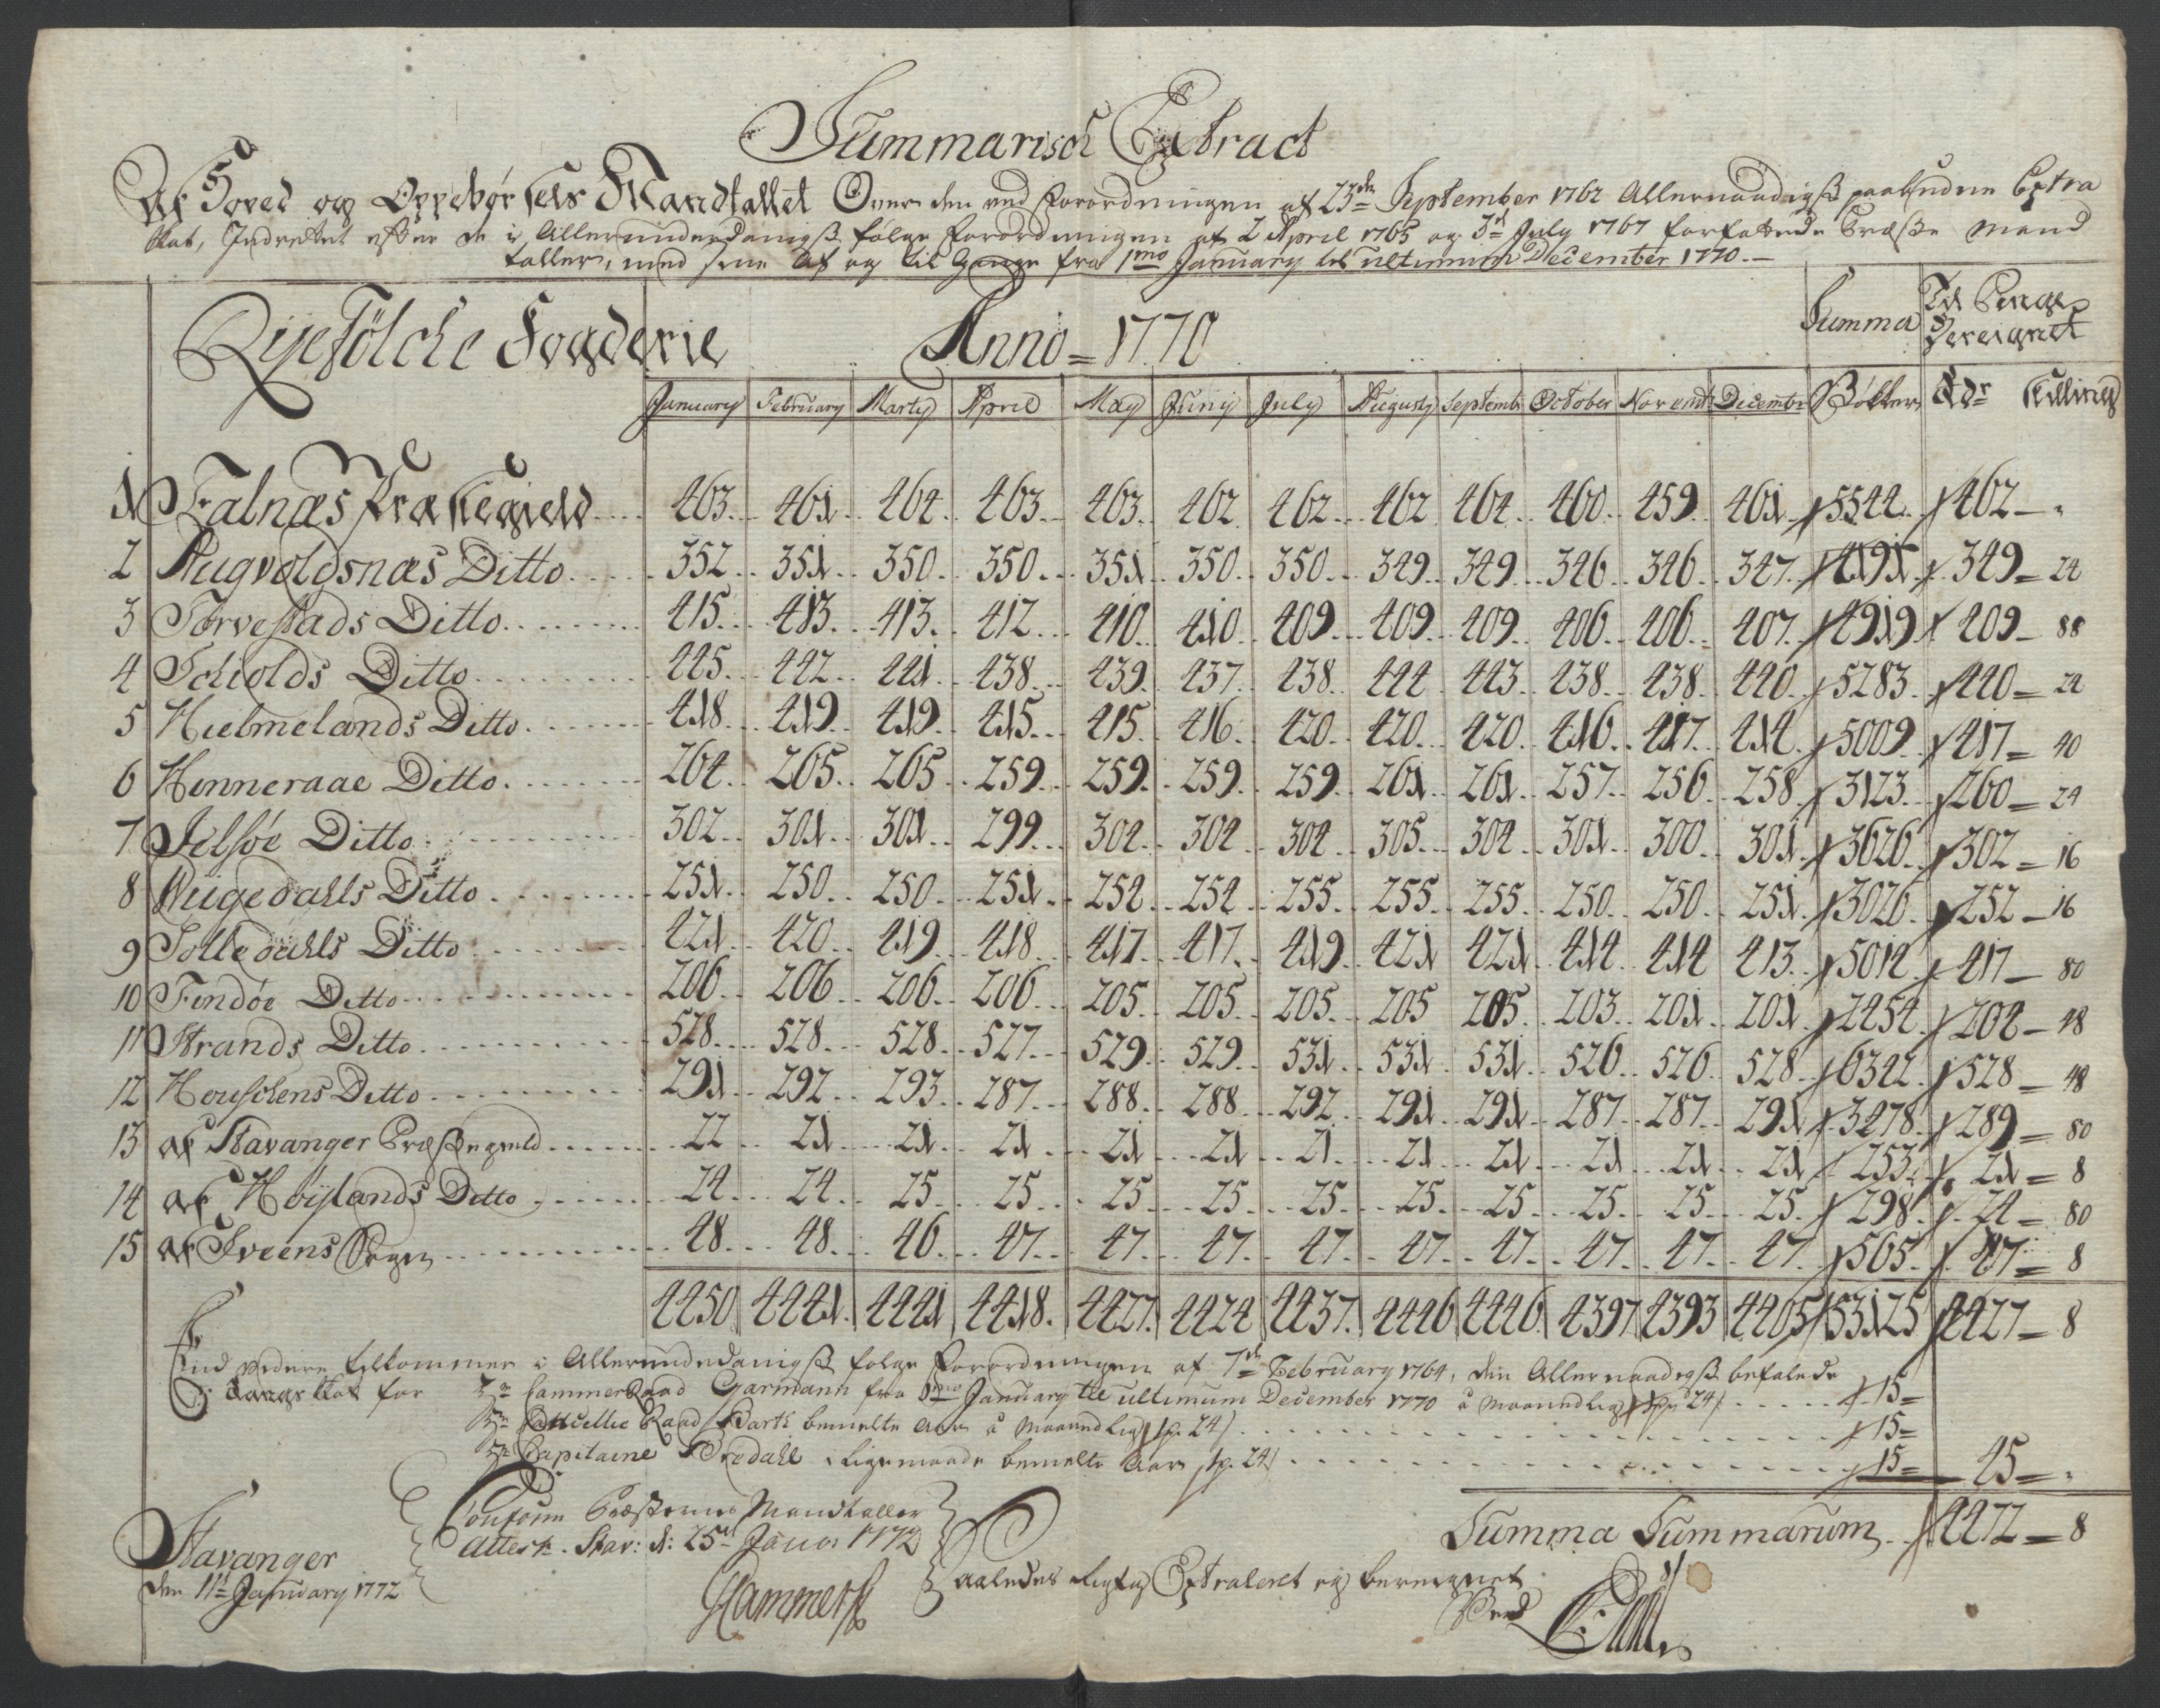 Summarisch Extract
Af Hoved og Oppebørsels Mandtallet Over den ved Forordningen af 23de September 1762 Allernaadigst paabudene Extra
Skat, Indrettet efter de i Allerunderdanigst følge Forordningen af 2 April 1765 og 3d July 1767 forfattede Præste Mand
taller, med sine Af og Til Gange fra 1mo January til ultimum December 1770.
Ryefölche Fogderie Anno = 1770 Summa Til Penge Bereignet
January February Marty April May Juny July Augusty Septembr October Novembr December Støkker Rdr Skilling
1 Falnæs Præstegield 463. 461. 464. 463. 463. 462 462 462 464. 460. 459. 461. 5544. 462 - "
2 Augvoldsnæs Ditto 352. 351. 350. 350. 351. 350. 350. 349. 349. 346. 346. 347. 4191. 349 = 24
3 Torvestads Ditto 415. 413. 413. 412. 410. 410. 409. 409. 409. 406. 406. 407. 4919. 409 - 88
4 Schiolds Ditto 445. 442. 441. 438. 439. 437. 438. 444. 443. 438. 438. 440. 5283. 440 = 24
5 Hielmelands Ditto 418. 419. 419. 415. 415. 416. 420. 420. 420. 416. 417. 414. 5009. 417 = 40
6 Hinneraae Ditto 264. 265. 265. 259. 259. 259. 259. 261. 261. 257. 256. 258. 3123. 260 = 24
7 Jelsöe Ditto 302. 301. 301. 299. 304. 304. 304. 305. 304. 301. 300. 301. 3626. 302 = 16
8 Augedahls Ditto 251. 250. 250. 251. 254. 254. 255. 255. 255. 250. 250. 251. 3026. 252 - 16
9 Solledahls Ditto 421. 420. 419. 418. 417. 417. 419. 421. 421. 414. 414 413. 5014. 417 - 80
10 Findöe Ditto 206. 206. 206. 206. 205. 205. 205. 205 205. 203. 201. 201. 2454. 204 - 48
11 Strands Ditto 528. 528. 528. 527. 529. 529. 531. 531. 531. 526. 526. 528. 6342. 528 = 48
12 Houschens Ditto 291. 292. 293. 287. 288. 288. 292. 291. 291. 287. 287. 291. 3478. 289 = 80
13 af Stavanger Præstegield 22 21. 21. 21. 21. 21. 21. 21. 21. 21. 21. 21. 253. 21 = 8
14 af Höylands Ditto 24. 24. 25. 25. 25. 25. 25. 25. 25. 25. 25. 25. 298. 24 = 80
15 af Sveens Sogn 48. 48. 46. 47. 47. 47. 47. 47. 47. 47. 47. 47. 565. 47 = 8
4450 4441. 4441 4418. 4427. 4424 4437. 4446 4446. 4397 4393 4405 53125 4427 = 8
End videre tilkommer i Allerunderdanigst følge Forordningen af 7de February 1764, den Allernaadigst befalede
Rangs Skat for Hr Cammer Raad Garmann fra 1mo January til ultimum December 1770 á maanedlig 24 15 =
Hr Cancellie Raad Bartz bemelte Aar á maanedlig 24 15 =
Hr Capitaine Brodahl i ligemaade bemelte Aar 24 15 = 45 = "
Conform Præsternes Mandtaller
Attest. Stav: d: 25d Janua 1772
Summa Summarum 4472 = 8
Stavanger
den 11te January 1772
Hammer
Saaledes rigtig Extraheret og bereignet
Ved